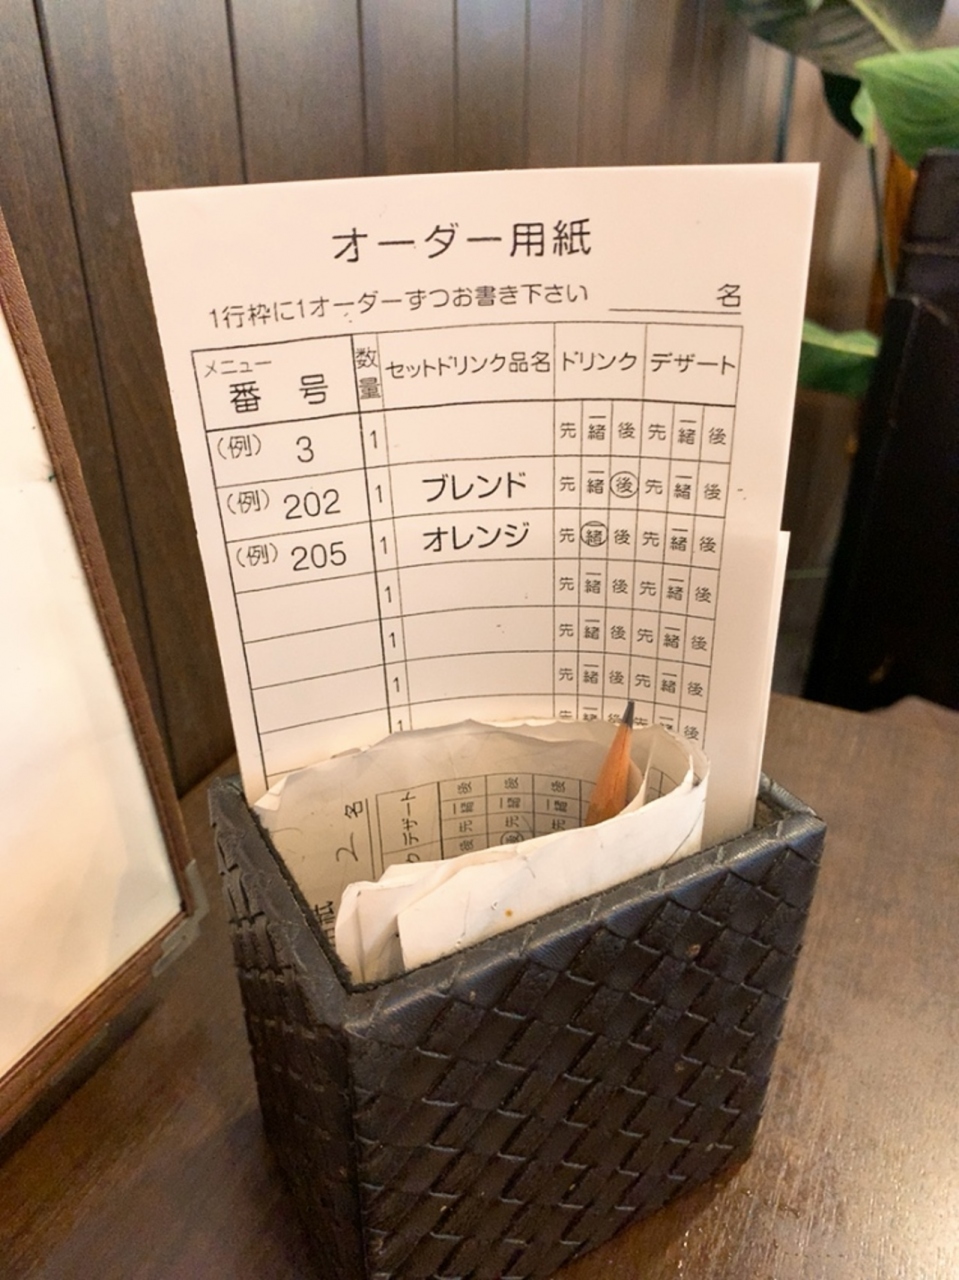 オーダー用紙
1行枠に1オーダーずつお書き下さい 名
メニュー番号 数量 セットドリンク品名 ドリンク デザート
(例) 3 1 先 一緒 後 先 一緒 後
(例) 202 1 ブレンド 先 一緒 後 先 一緒 後
(例) 205 1 オレンジ 先 一緒 後 先 一緒 後
1 先 一緒 後 先 一緒 後
1 先 一緒 後 先 一緒 後
1 先 一緒 後 先 一緒 後
1 先 一緒 後 先 一緒 後
2 名
デザート
後 後 後
一緒 一緒 一緒
先 先 先
後 後